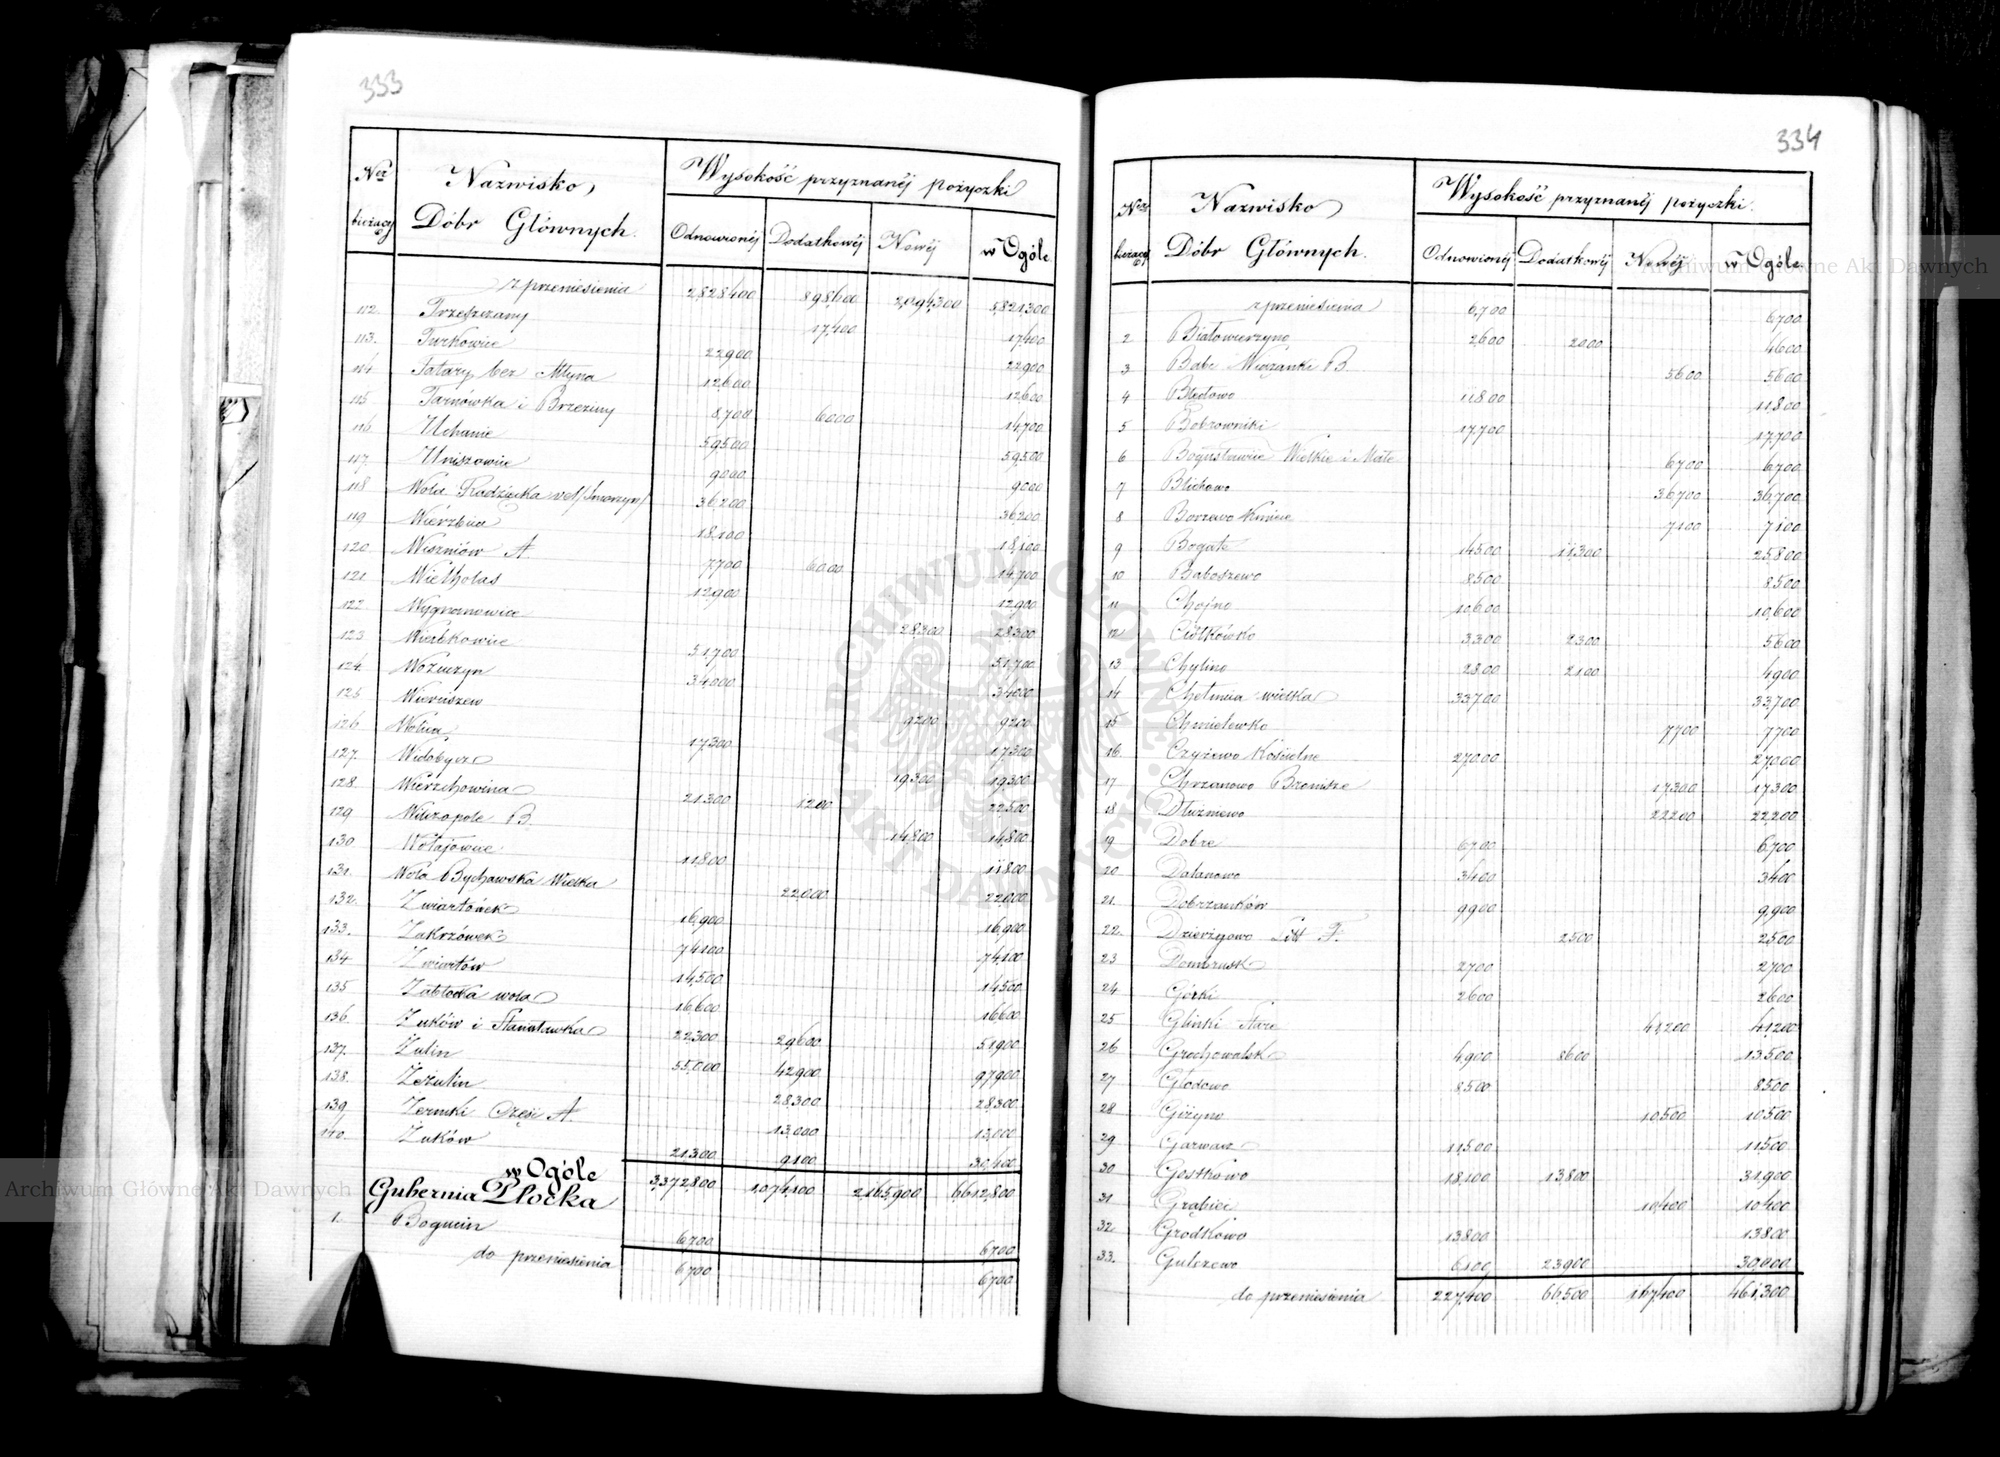 333
Ner bieżący Nazwisko Dóbr Głównych. Wysokość przyznanéj pożyczki
Odnowionéj Dodatkowéj Nowéj w Ogóle
z przeniesienia 2,828,400 898,600 2,094,300 5,821,300
112. Trzeszczany 17,400 17,400
113. Turkowice 22,900 22,900
114 Tatary bez Młyna 12,600 12,600
115 Tarnówka i Brzeziny 8,700 6000 14,700
116 Uchanie 59,500 59,500
117. Uniszowice 9000 9000
118 Wola Gradzicka vel 36,200 36,200
119 Wierzbica 18,100 18,100
120. Wiszniów A 7700 6000 14,700
121. Wielkolas 12,900 12,900
122. Wygnanowice 28,300 28,300
123 Wierzbkowice 51,700 51,700
124. Wożuczyn 34,000 34,000
125 Wieruszew 9200 9200
126 Wolica 17,300 17,300
127. Widobycz 19,300 19,300
128. Wierzchowina 21,300 1200 22,500
129 Wilczopole B 14,800 14,800
130 Wołajowice 11,800 11,800
131. Wola Bychawska Wielka 22,000 22,000
132. Zwiartówek 16,900 16,900
133. Zakrzówek 74,100 74,100
134 Zwiartów 14,500 14,500
135 Zabłocka wola 16,600 16,600
136. Żuków i Stanisławka 22,300 29,600 51,900
137. Żulin 55,000 42,900 97,900
138. Zezulin 28,300 28,300
139. Żerniki Część A. 13,000 13,000
140. Żuków 21,300 9,100 30,400
w Ogóle 3,372,800 1,074,100 2,165,900 6,612,800
Gubernia Płocka
1. Bogucin 6,700 6,700
do przeniesienia 6,700 6,700
334
Ner bieżący Nazwisko Dóbr Głównych. Wysokość przyznanéj pożyczki.
Odnowionéj Dodatkowéj Nowéj w Ogóle
z przeniesienia 6,700 6,700
2 Białowierzyno 2,600 2000 4600
3 Babi Wiczanki B. 5,600 5600
4 Błędowo 11,800 11,800
5 Bobrowniki 17,700 17,700
6 Bogusławice Wielkie i Małe 6,700 6,700
7 Blichowo 36,700 36,700
8 Borzewo Kmiece 7,100 7,100
9 Bogate 14500 11,300 25,800
10 Baboszewo 8,500 8,500
11 Chojno 10,600 10,600
12 Ciółkówko 3,300 2,300 5,600
13 Chylino 2800 2,100 4900
14 Chełmica wielka 33,700 33,700
15 Chmielewko 7,700 7700
16. Czyżewo Kościelne 27000 27,000
17 Chrzanowo Bronisze 17,300 17,300
18 Dłużniewo 22,200 22,200
19 Dobre 6,700 6,700
20 Dalanowo 3400 3,400
21. Dobrzanków 9900 9,900
22. Dzierżgowo Litt F. 2500 2500
23 Dombrusk 2700 2,700
24 Górki 2600 2600
25 Glinki Stare 41,200 41,200
26 Grochowalsk 4900 8600 13,500
27 Głodowo 8,500 8500
28 Giżyno 10,500 10,500
29 Garwarz 11,500 11,500
30 Gostkowo 18,100 13,800 31,900
31 Grąbiec 10,400 10,400
32. Grodkowo 13800 13,800
33. Gulczewo 6,100 23,900 30,000
do przeniesienia 227,400 66,500 167,400 461,300
Archiwum Główne Akt Dawnych
Archiwum Główne Akt Dawnych
· ARCHIWUM GŁÓWNE · AKT DAWNYCH